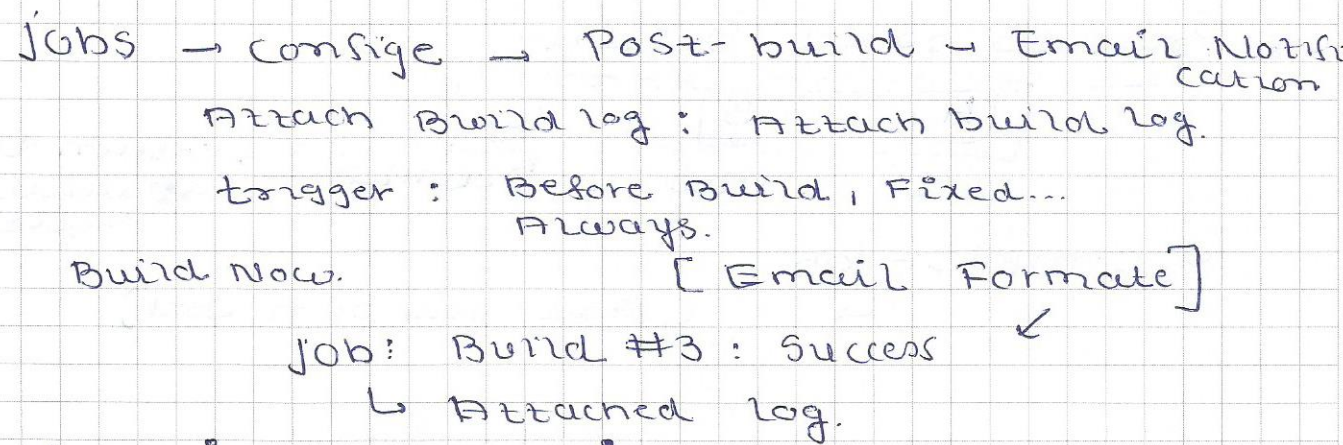 Jobs → Confige → Post-build → Email Notifi
cation
Attach Build log : Attach build log.
trigger : Before Build, Fixed...
Always.
Build Now. [Email Formate]
↙
Job: Build #3 : Success
↳ Attached log.